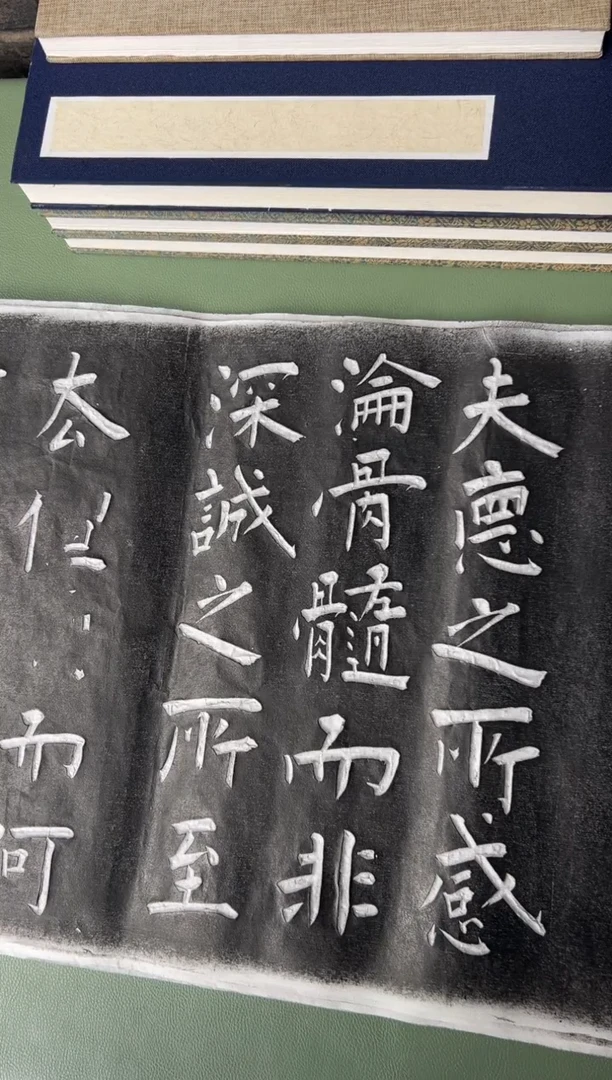 夫悳之所感
淪骨髓而非
深誠之所至
厺而何